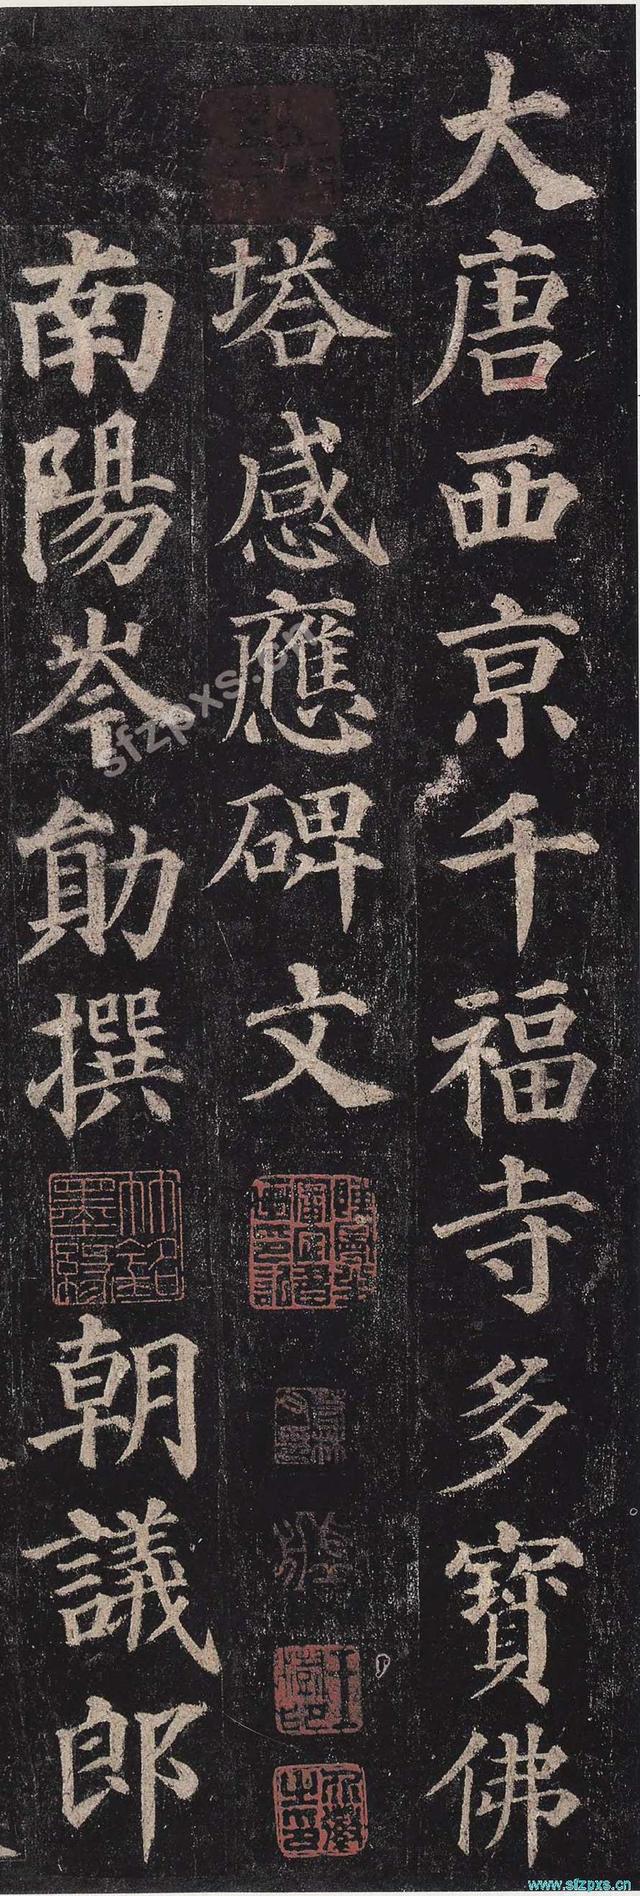 大唐西京千福寺多寶佛
塔感應碑文
南陽岑勛撰 朝議郎
sfzpxs.cn
www.sfzpxs.cn